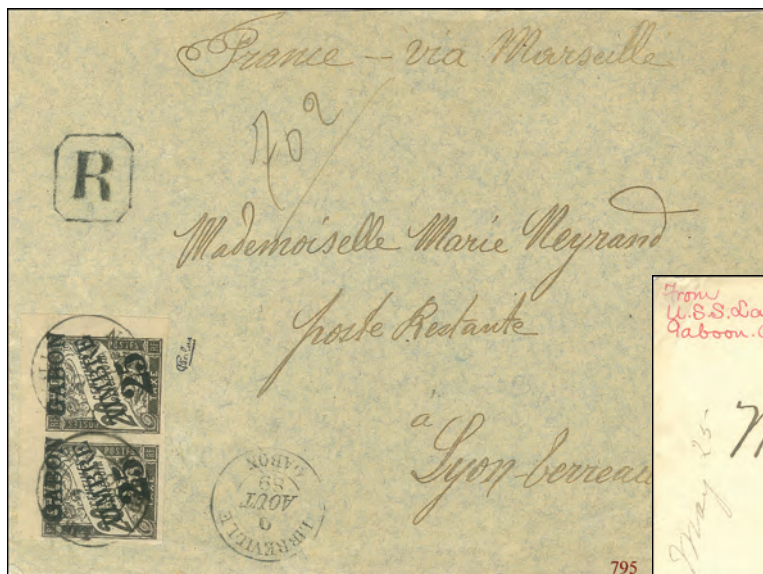 France – via Marseille
702
R
Mademoiselle Marie Neyrand
poste Restante
à
Lyon-
GABON
25
GABON
25
LIBREVILLE
AOUT
89
GABON
795
From
U.S.S. La
Gaboon.
May 25-